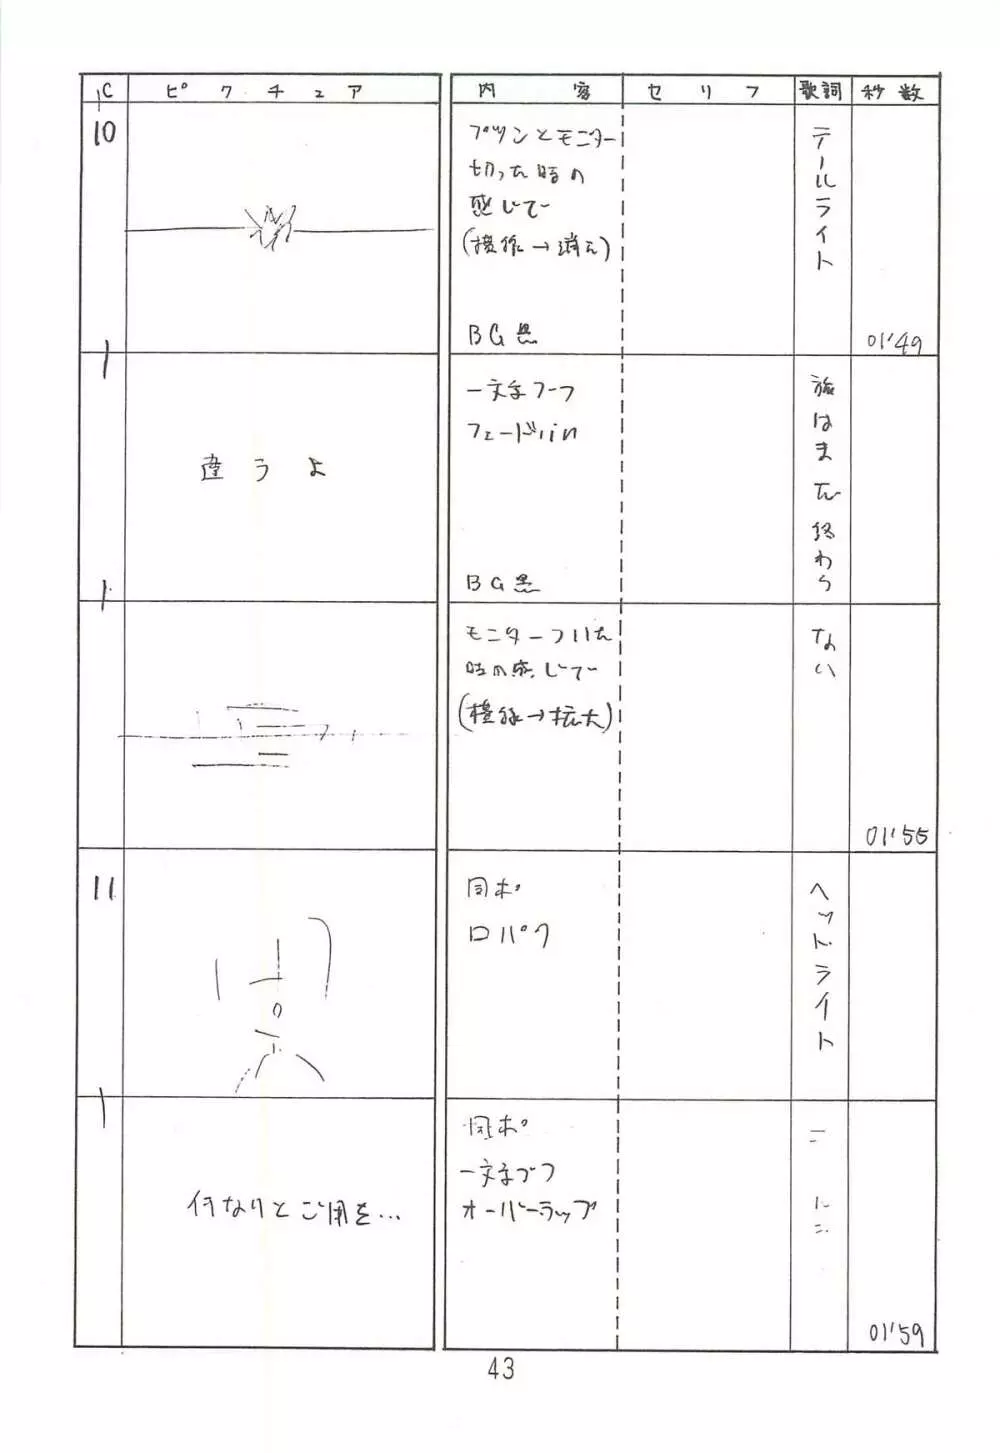 C ピクチュア 内容 セリフ 歌詞 秒数
10
プツンとモニター
切った時の
感じで
(横線→消え)
BG黒
テールライト
01'49
違うよ
一文字づつ
フェードin
BG黒
旅はまだ終わら
モニターついた
時の感じで
(横線→拡大)
ない
01'55
11
同ポ
口パク
ヘッドライト
何なりとご用を...
同ポ
一文字づつ
オーバーラップ
〃 〃
01'59
43